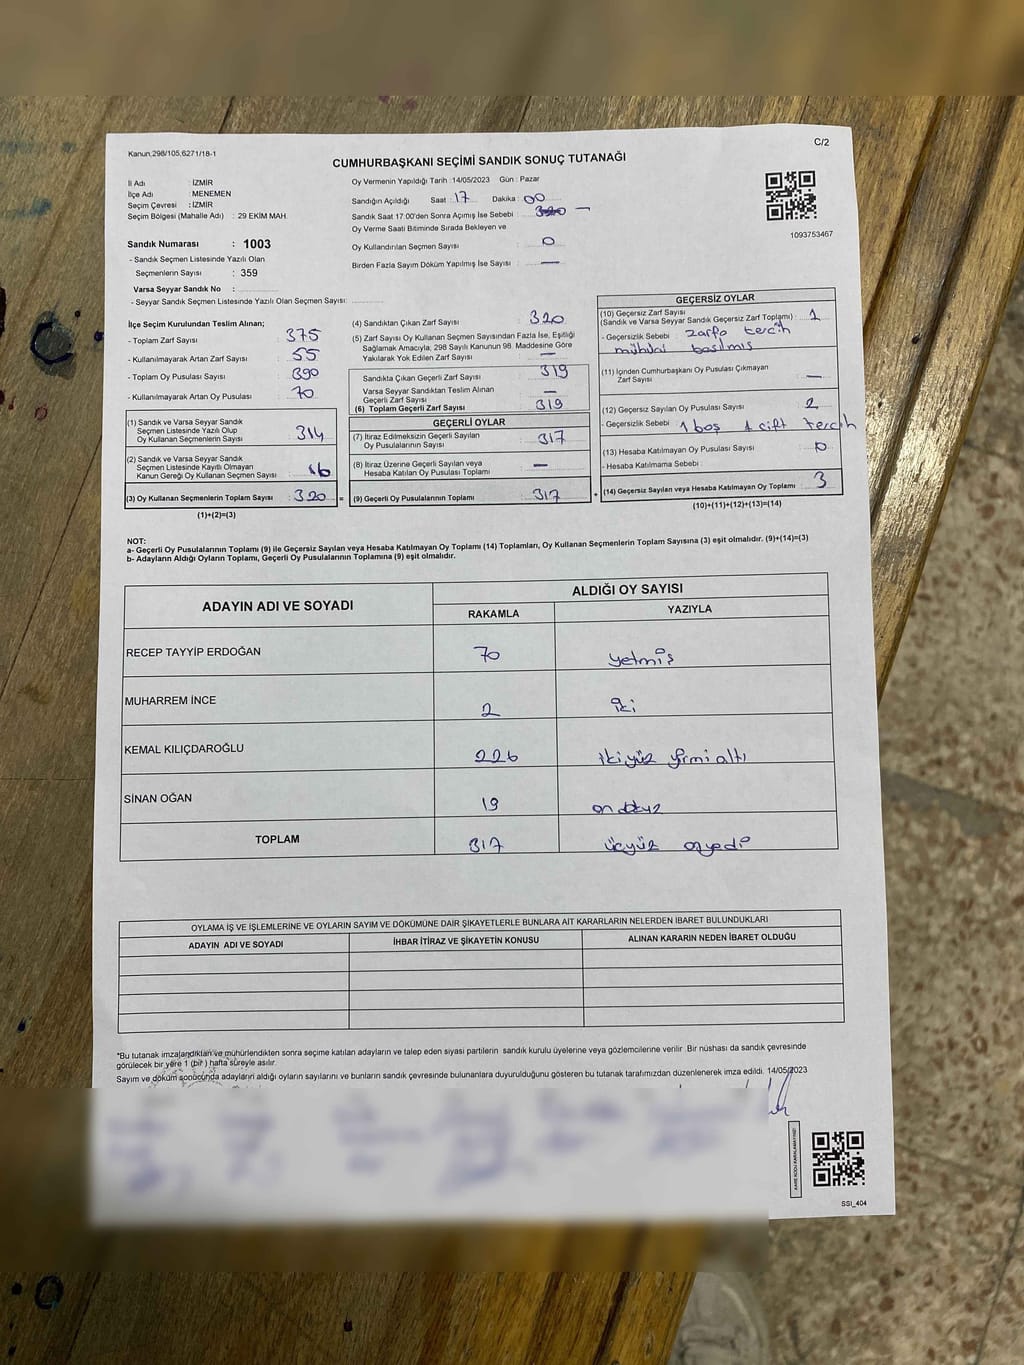 Kanun,298/105,6271/18-1
C/2
CUMHURBAŞKANI SEÇİMİ SANDIK SONUÇ TUTANAĞI
İl Adı : İZMİR
İlçe Adı : MENEMEN
Seçim Çevresi : İZMİR
Seçim Bölgesi (Mahalle Adı) : 29 EKİM MAH.
Sandık Numarası : 1003
- Sandık Seçmen Listesinde Yazılı Olan
Seçmenlerin Sayısı : 359
Varsa Seyyar Sandık No :
- Seyyar Sandık Seçmen Listesinde Yazılı Olan Seçmen Sayısı:
Oy Vermenin Yapıldığı Tarih :14/05/2023 Gün : Pazar
Sandığın Açıldığı Saat : 17 Dakika : 00
Sandık Saat 17.00'den Sonra Açımış İse Sebebi : —
Oy Verme Saati Bitiminde Sırada Bekleyen ve
Oy Kullandırılan Seçmen Sayısı : 0
Birden Fazla Sayım Döküm Yapılmış İse Sayısı : —
1093753467
İlçe Seçim Kurulundan Teslim Alınan;
- Toplam Zarf Sayısı : 375
- Kullanılmayarak Artan Zarf Sayısı : 55
- Toplam Oy Pusulası Sayısı : 390
- Kullanılmayarak Artan Oy Pusulası : 70
(1) Sandık ve Varsa Seyyar Sandık
Seçmen Listesinde Yazılı Olup
Oy Kullanan Seçmenlerin Sayısı : 314
(2) Sandık ve Varsa Seyyar Sandık
Seçmen Listesinde Kayıtlı Olmayan
Kanun Gereği Oy Kullanan Seçmen Sayısı : 16
(3) Oy Kullanan Seçmenlerin Toplam Sayısı : 320 =
(1)+(2)=(3)
(4) Sandıktan Çıkan Zarf Sayısı : 320
(5) Zarf Sayısı Oy Kullanan Seçmen Sayısından Fazla İse, Eşitliği
Sağlamak Amacıyla; 298 Sayılı Kanunun 98. Maddesine Göre
Yakılarak Yok Edilen Zarf Sayısı : —
Sandıkta Çıkan Geçerli Zarf Sayısı : 319
Varsa Seyyar Sandıktan Teslim Alınan
Geçerli Zarf Sayısı : —
(6) Toplam Geçerli Zarf Sayısı : 319
GEÇERLİ OYLAR
(7) İtiraz Edilmeksizin Geçerli Sayılan
Oy Pusulalarının Sayısı : 317
(8) İtiraz Üzerine Geçerli Sayılan veya
Hesaba Katılan Oy Pusulası Toplamı : —
(9) Geçerli Oy Pusulalarının Toplamı : 317 +
GEÇERSİZ OYLAR
(10) Geçersiz Zarf Sayısı
(Sandık ve Varsa Seyyar Sandık Geçersiz Zarf Toplamı) : 1
- Geçersizlik Sebebi : zarfa tercih
basılmış
(11) İçinden Cumhurbaşkanı Oy Pusulası Çıkmayan
Zarf Sayısı : —
(12) Geçersiz Sayılan Oy Pusulası Sayısı : 2
- Geçersizlik Sebebi : 1 boş 1 çift tercih
(13) Hesaba Katılmayan Oy Pusulası Sayısı : 0
- Hesaba Katılmama Sebebi :
(14) Geçersiz Sayılan veya Hesaba Katılmayan Oy Toplamı : 3
(10)+(11)+(12)+(13)=(14)
NOT:
a- Geçerli Oy Pusulalarının Toplamı (9) ile Geçersiz Sayılan veya Hesaba Katılmayan Oy Toplamı (14) Toplamları, Oy Kullanan Seçmenlerin Toplam Sayısına (3) eşit olmalıdır. (9)+(14)=(3)
b- Adayların Aldığı Oyların Toplamı, Geçerli Oy Pusulalarının Toplamına (9) eşit olmalıdır.
ADAYIN ADI VE SOYADI
ALDIĞI OY SAYISI
RAKAMLA YAZIYLA
RECEP TAYYİP ERDOĞAN 70 yetmiş
MUHARREM İNCE 2 iki
KEMAL KILIÇDAROĞLU 226 ikiyüz yirmi altı
SİNAN OĞAN 19 on dokuz
TOPLAM 317 üçyüz onyedi
OYLAMA İŞ VE İŞLEMLERİNE VE OYLARIN SAYIM VE DÖKÜMÜNE DAİR ŞİKAYETLERLE BUNLARA AİT KARARLARIN NELERDEN İBARET BULUNDUKLARI
ADAYIN ADI VE SOYADI İHBAR İTİRAZ VE ŞİKAYETİN KONUSU ALINAN KARARIN NEDEN İBARET OLDUĞU
*Bu tutanak imzalandıktan ve mühürlendikten sonra seçime katılan adayların ve talep eden siyasi partilerin sandık kurulu üyelerine veya gözlemcilerine verilir. Bir nüshası da sandık çevresinde
görülecek bir yere 1 (bir) hafta süreyle asılır.
Sayım ve döküm sonucunda adayların aldığı oyların sayılarını ve bunların sandık çevresinde bulunanlara duyurulduğunu gösteren bu tutanak tarafımızdan düzenlenerek imza edildi. 14/05/2023
SSİ_404